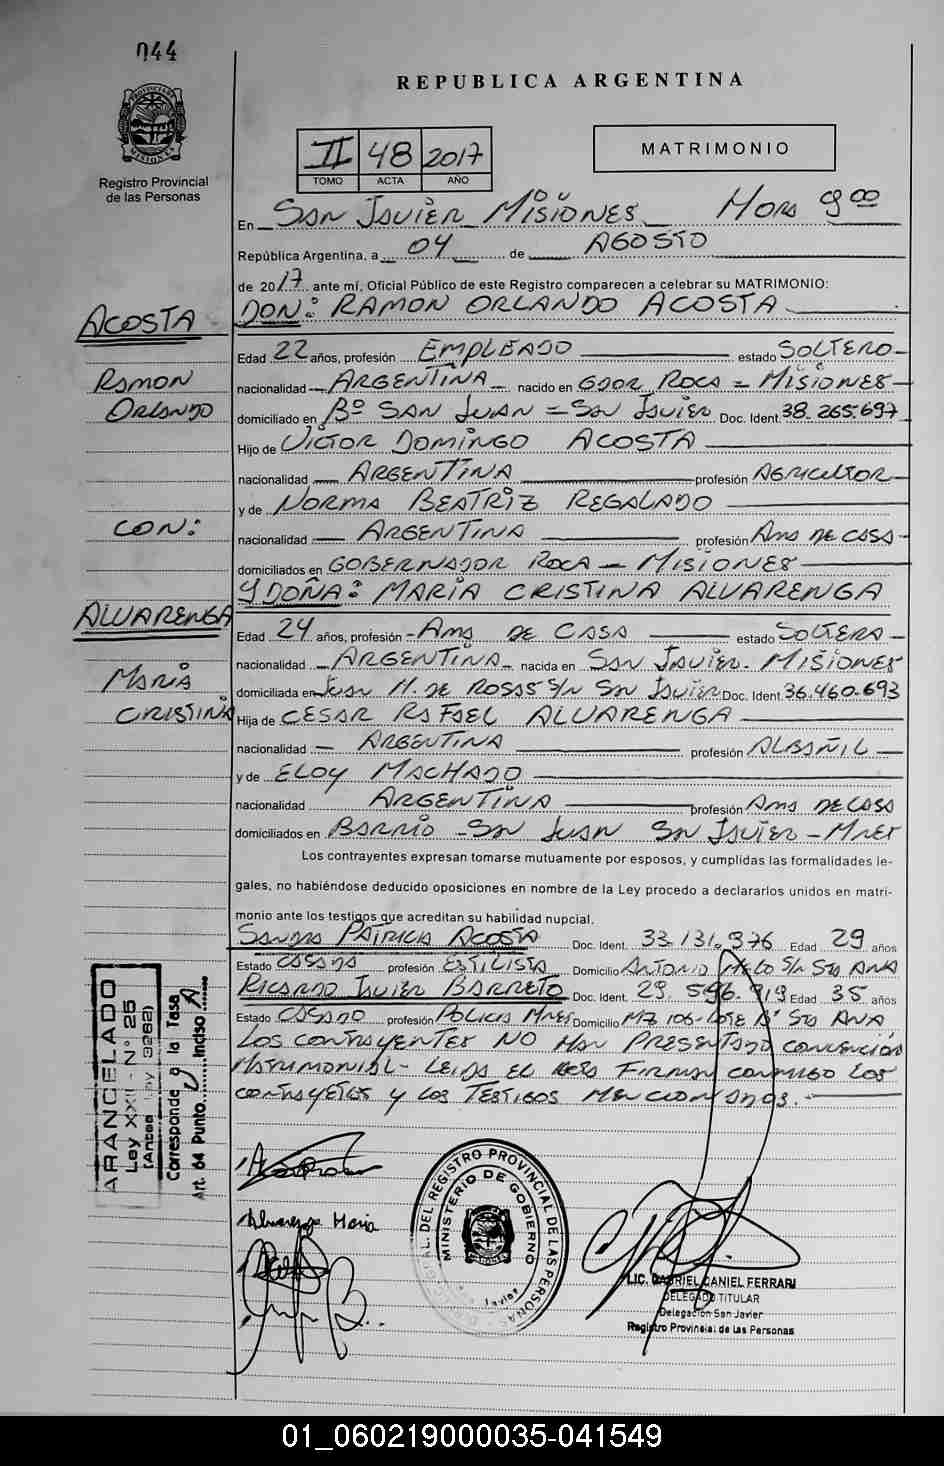 044
REPUBLICA ARGENTINA
II 48 2017
TOMO ACTA AÑO
MATRIMONIO
Registro Provincial
de las Personas
PROVINCIA DE MISIONES
En SAN JAVIER MISIONES HORA 9 00
República Argentina, a 04 de AGOSTO
de 2017 ante mí, Oficial Público de este Registro comparecen a celebrar su MATRIMONIO:
DON: RAMON ORLANDO ACOSTA
ACOSTA
Edad 22 años, profesión EMPLEADO estado SOLTERO
RAMON
nacionalidad ARGENTINA nacido en GDOR ROCA = MISIONES
ORLANDO
domiciliado en Bº SAN JUAN = SAN JAVIER Doc. Ident. 38.265.697
Hijo de VICTOR DOMINGO ACOSTA
nacionalidad ARGENTINA profesión AGRICULTOR
y de NORMA BEATRIZ REGALADO
CON:
nacionalidad ARGENTINA profesión AMA DE CASA
domiciliados en GOBERNADOR ROCA - MISIONES
Y DOÑA: MARIA CRISTINA ALVARENGA
ALVARENGA
Edad 24 años, profesión - AMA DE CASA estado SOLTERA
nacionalidad - ARGENTINA - nacida en SAN JAVIER - MISIONES
MARIA
domiciliada en JUAN M. DE ROSAS S/N SAN JAVIER Doc. Ident. 36.460.693
CRISTINA
Hija de CESAR RAFAEL ALVARENGA
nacionalidad - ARGENTINA profesión ALBAÑIL
y de ELOY MACHADO
nacionalidad ARGENTINA profesión AMA DE CASA
domiciliados en BARRIO - SAN JUAN SAN JAVIER - MNES
Los contrayentes expresan tomarse mutuamente por esposos, y cumplidas las formalidades le-
gales, no habiéndose deducido oposiciones en nombre de la Ley procedo a declararlos unidos en matri-
monio ante los testigos que acreditan su habilidad nupcial.
SANDRA PATRICIA ACOSTA Doc. Ident. 33.131.976 Edad 29 años
Estado CASADA profesión ESTILISTA Domicilio ANTONIO MELO S/N STA ANA
RICARDO JAVIER BARRETO Doc. Ident. 29.596.919 Edad 35 años
Estado CASADO profesión POLICIA MNES Domicilio MZ 106 - LOTE STA ANA
LOS CONTRAYENTES NO HAN PRESENTADO CONVENCION
MATRIMONIAL - LEIDA EL ACTA FIRMAN CONMIGO LOS
CONTRAYETES Y LOS TESTIGOS MENCIONADOS.
ARANCELADO
Ley XXII - N° 25
(Antes Ley 3262)
Corresponde g la Tasa
Art. 64 Punto Inciso A
Alvarenga Maria
REGISTRO PROVINCIAL DE LAS PERSONAS
MINISTERIO DE GOBIERNO
MISIONES
San Javier
LIC. GABRIEL DANIEL FERRARI
DELEGADO TITULAR
Delegación San Javier
Registro Provincial de las Personas
01_060219000035-041549